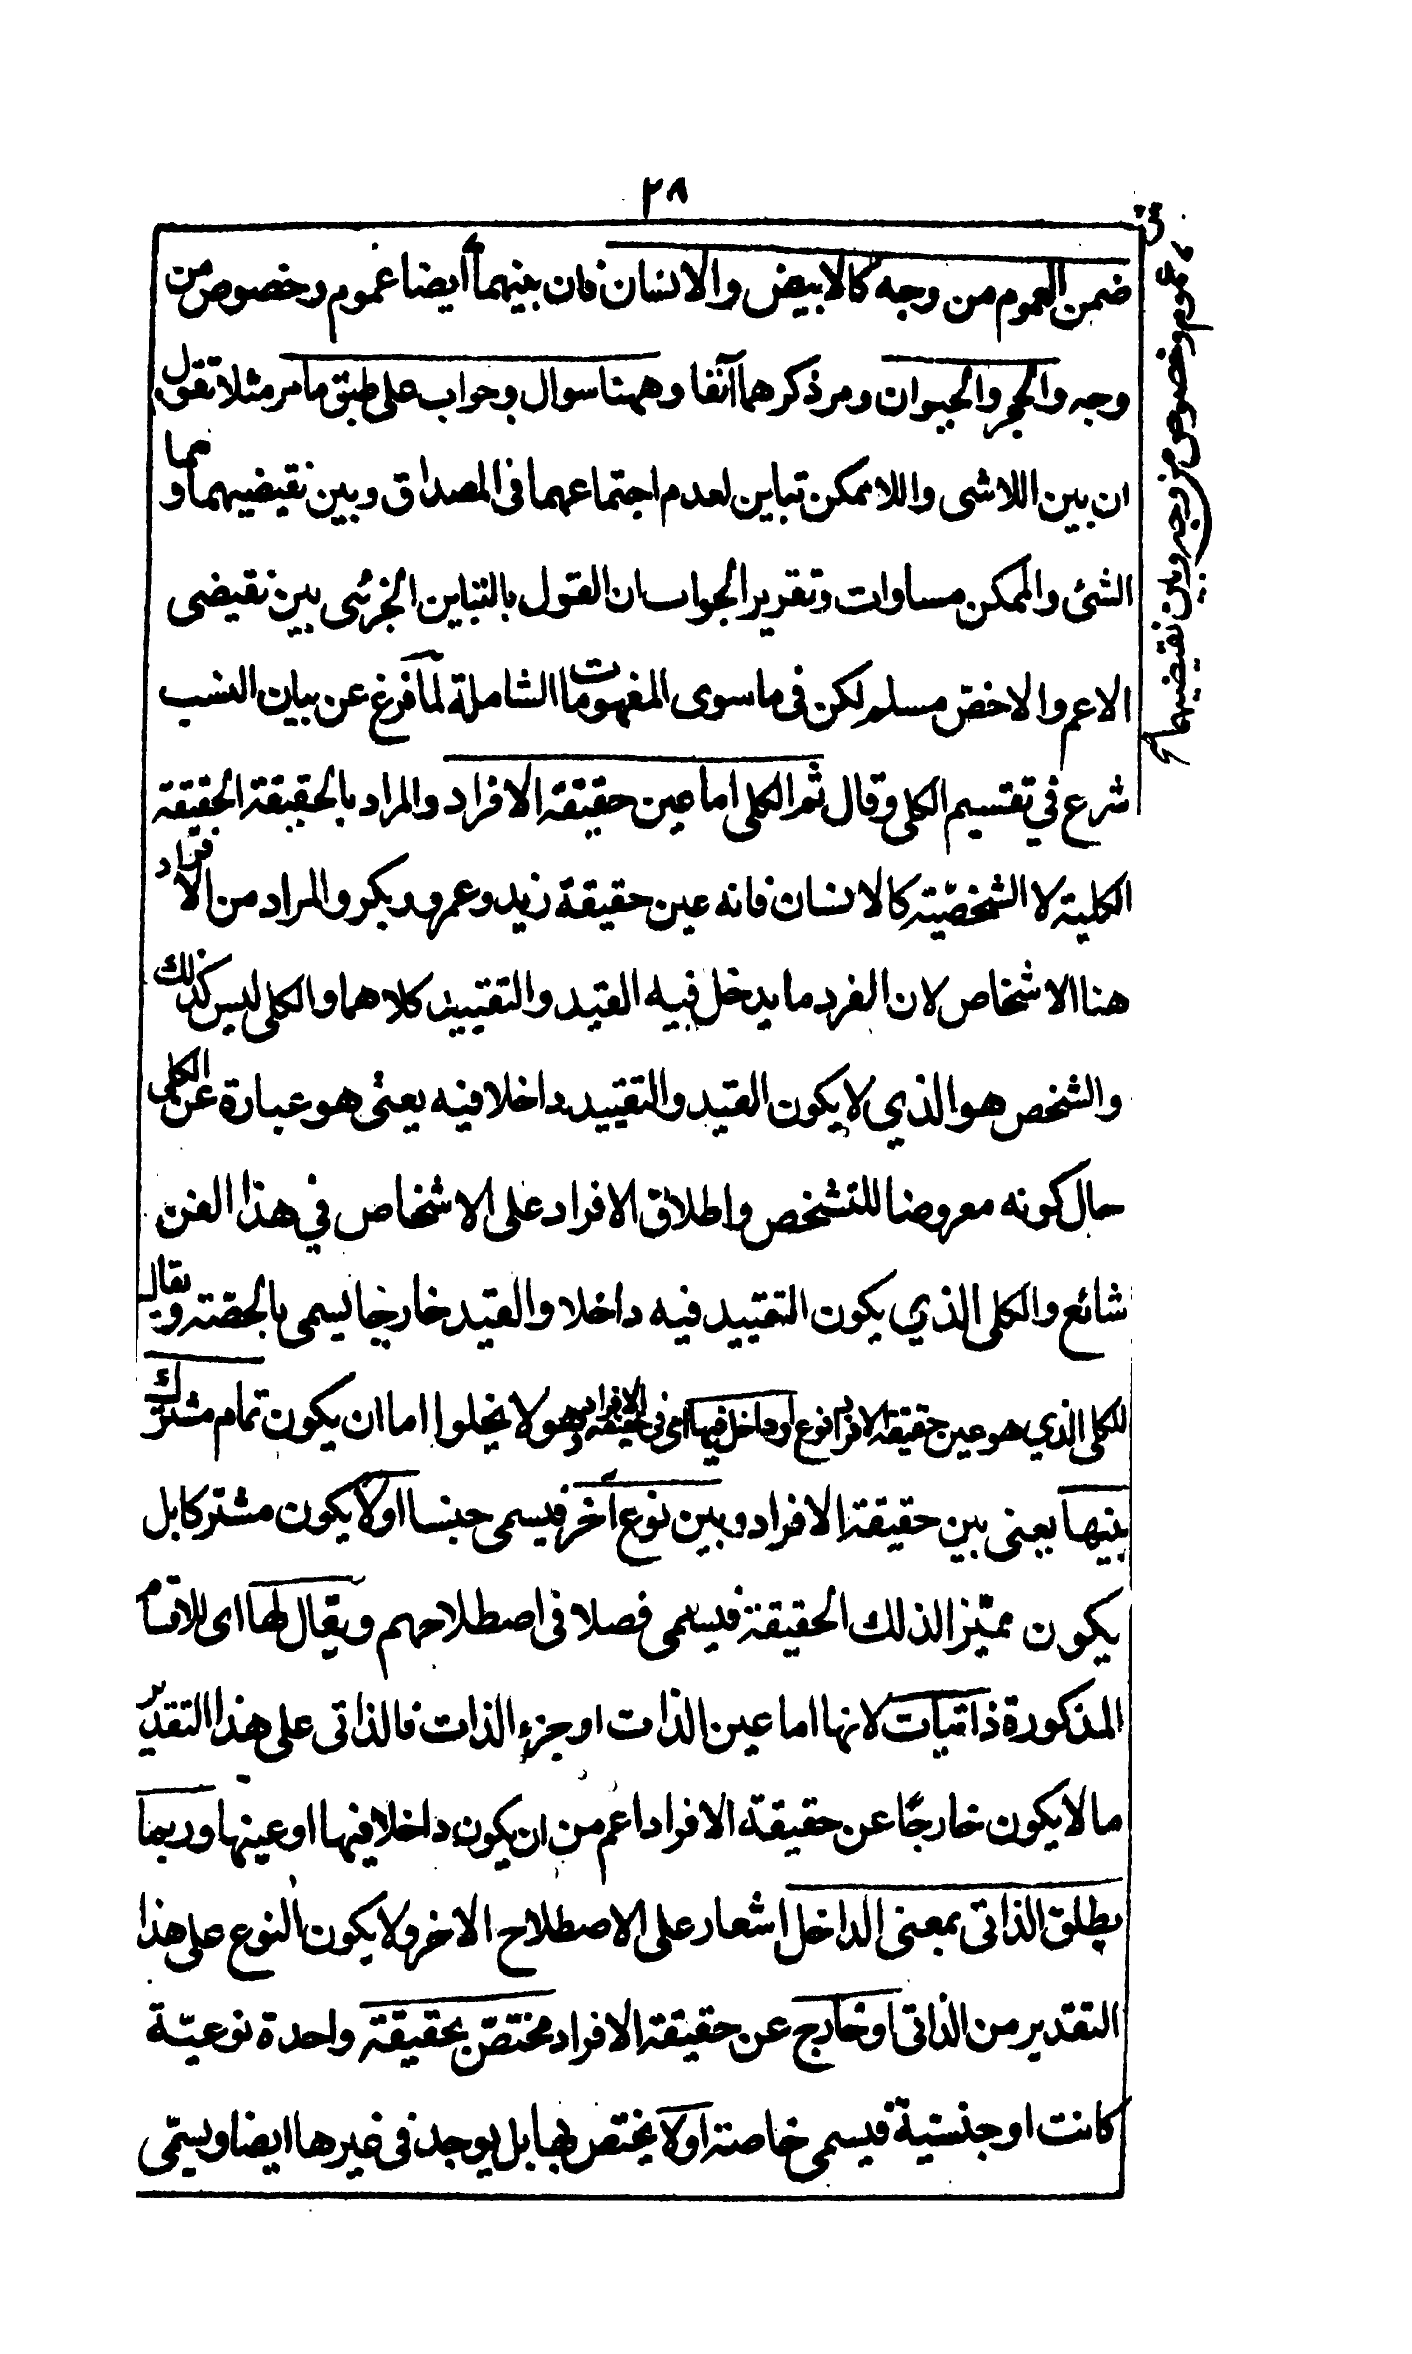 ٢٨
ضمن العموم من وجه كالابيض والانسان فان بينهما ايضا عموم وخصوص من
وجه والحجر والحيوان ومر ذكرهما آنفا وههنا سوال وجواب على طبق ما مر مثلا تقول
ان بين اللاشى واللاممكن تباين لعدم اجتماعهما فى المصداق وبين نقيضيهما وهما
الشئ والممكن مساوات وتقرير الجواب ان القول بالتباين الجزئى بين نقيضى
الاعم والاخص مسلم لكن فى ما سوى المفهومات الشاملة لما فرغ عن بيان النسب
شرع في تقسيم الكلى وقال ثم الكلى اما عين حقيقة الافراد والمراد بالحقيقة الحقيقة
الكلية لا الشخصيّة كالانسان فانه عين حقيقة زيد وعمرو وبكر والمراد من الافراد
هنا الاشخاص لان الفرد ما يدخل فيه القيد والتقييد كلاهما والكلى ليس كذلك
والشخص هو الذي لا يكون القيد والتقييد داخلا فيه يعنى هو عبارة عن الكلى
حال كونه معروضا للتشخص واطلاق الافراد على الاشخاص في هذا الفن
شائع والكلى الذي يكون التقييد فيه داخلا والقيد خارجا يسمى بالحصّة ويقال
للكلى الذي هو عين حقيقة الافراد نوع او داخل فيها اى فى حقيقة الافراد وهو لا يخلوا اما ان يكون تمام مشترك
بينها يعنى بين حقيقة الافراد وبين نوع آخر فيسمى جنسا او لا يكون مشتركا بل
يكون مميّزا لذلك الحقيقة فيسمى فصلا فى اصطلاحهم ويقال لها اى للاقسام
المذكورة ذاتيات لانها اما عين الذات او جزء الذات فالذاتى على هذا التقدير
ما لا يكون خارجًا عن حقيقة الافراد اعم من ان يكون داخلا فيها او عينها وربما
يطلق الذاتى بمعنى الداخل اشعار على الاصطلاح الاخر ولا يكون النوع على هذا
التقدير من الذاتى او خارج عن حقيقة الافراد مختصّ بحقيقة واحدة نوعيّة
كانت او جنسيّة فيسمى خاصة او لا يختص بها بل يوجد فى غيرها ايضا ويسمّى
عموم وخصوص من وجه وبين نقيضيهما